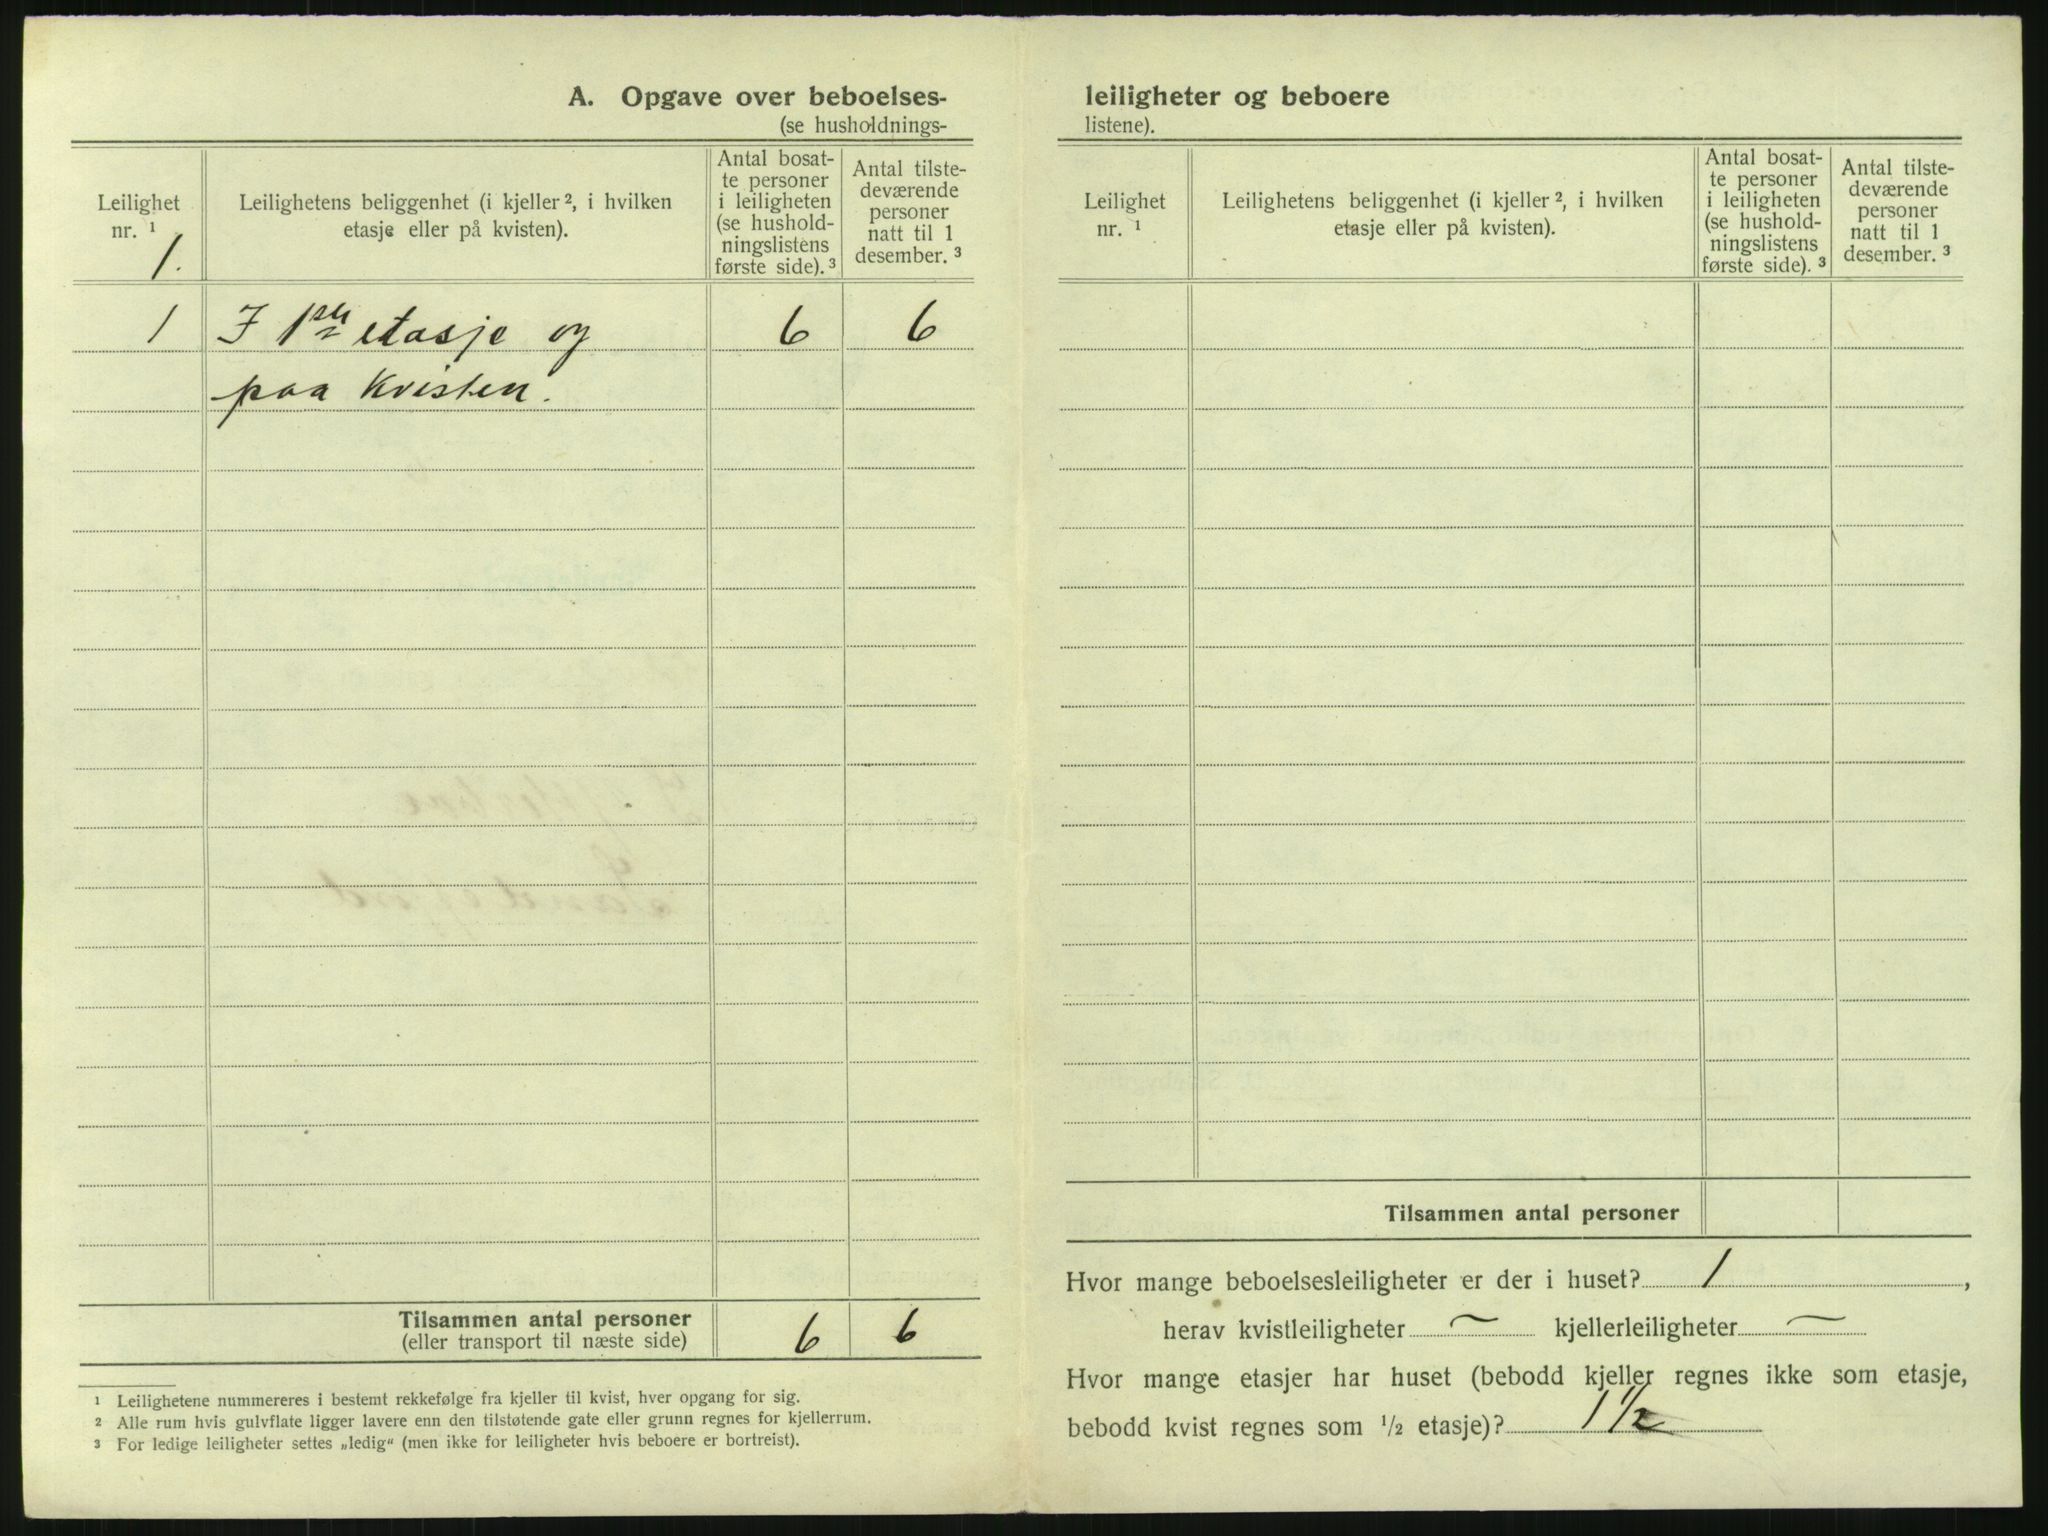 A. Opgave over beboelses-
(se husholdnings-
Leilighet
nr. ¹
1.
Leilighetens beliggenhet (i kjeller ², i hvilken
etasje eller på kvisten).
Antal bosat-
te personer
i leiligheten
(se hushold-
ningslistens
første side). ³
Antal tilste-
deværende
personer
natt til 1
desember. ³
1 I 1ste etasje og 6 6
paa Kvisten.
Tilsammen antal personer
(eller transport til næste side) 6 6
¹ Leilighetene nummereres i bestemt rekkefølge fra kjeller til kvist, hver opgang for sig.
² Alle rum hvis gulvflate ligger lavere enn den tilstøtende gate eller grunn regnes for kjellerrum.
³ For ledige leiligheter settes „ledig“ (men ikke for leiligheter hvis beboere er bortreist).
leiligheter og beboere
listene).
Leilighet
nr. ¹
Leilighetens beliggenhet (i kjeller ², i hvilken
etasje eller på kvisten).
Antal bosat-
te personer
i leiligheten
(se hushold-
ningslistens
første side). ³
Antal tilste-
deværende
personer
natt til 1
desember. ³
Tilsammen antal personer
Hvor mange beboelsesleiligheter er der i huset? 1,
herav kvistleiligheter — kjellerleiligheter —
Hvor mange etasjer har huset (bebodd kjeller regnes ikke som etasje,
bebodd kvist regnes som ½ etasje)? 1 ½